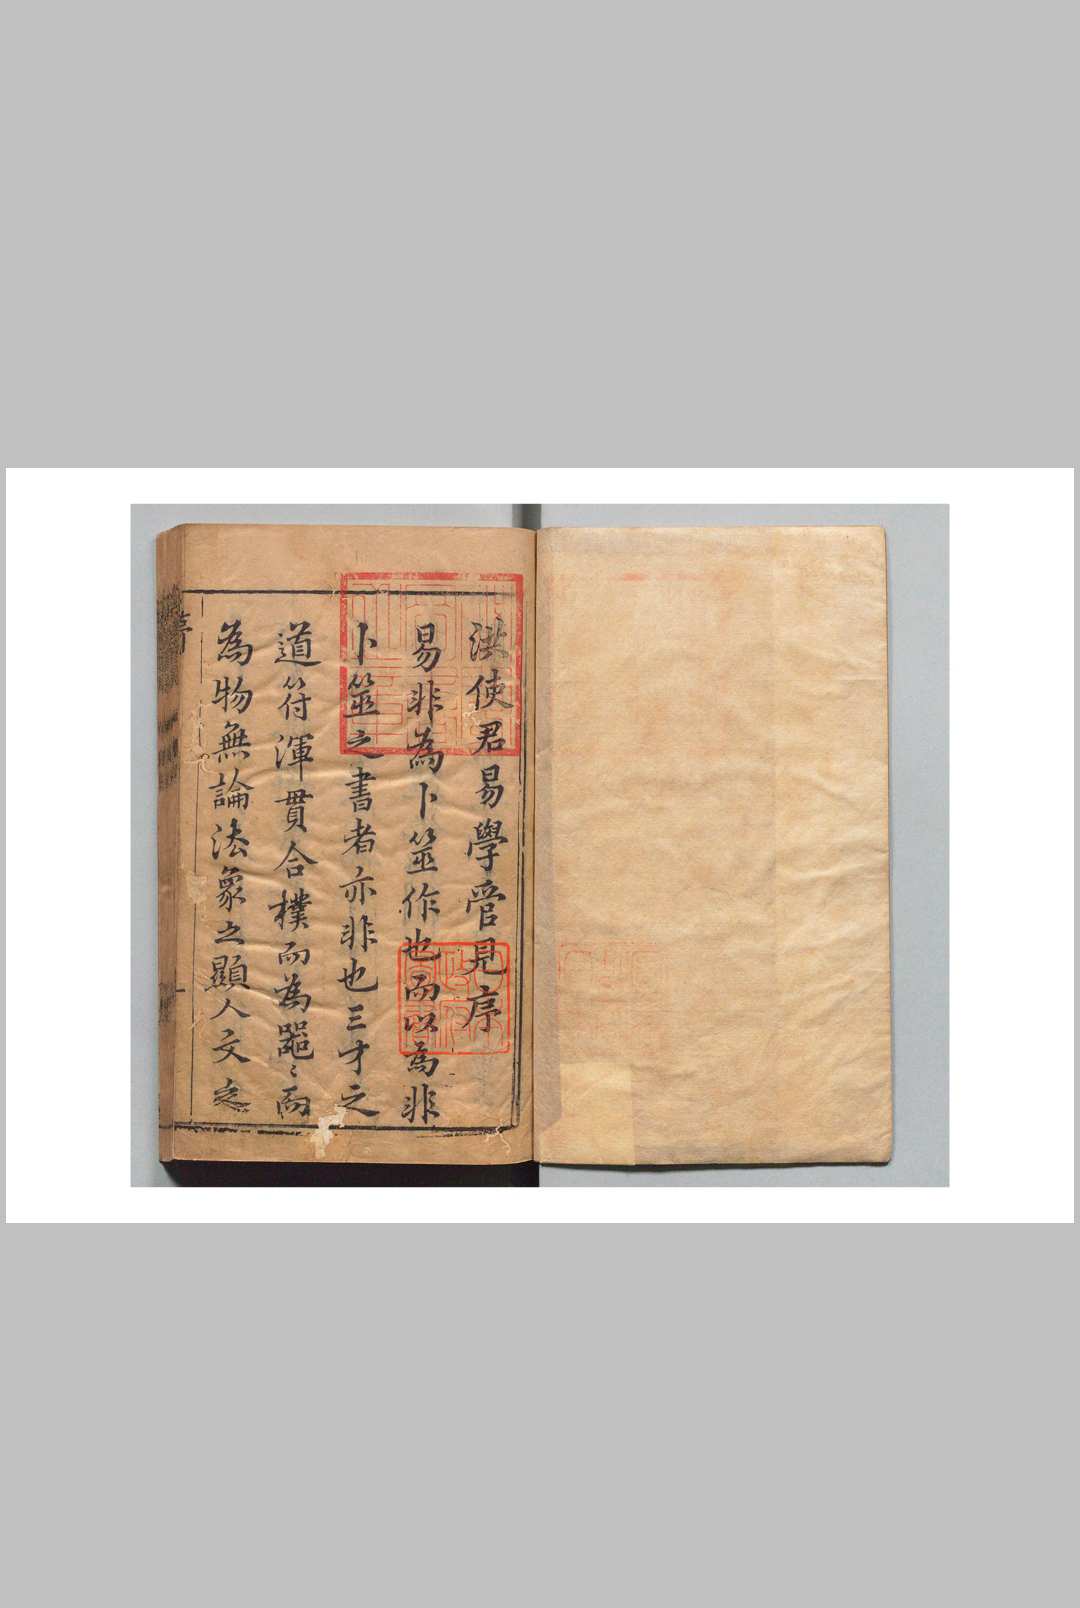 洪使君易學管見序
易非為卜筮作也而以為非
卜筮之書者亦非也三才之
道符渾貫合樸而為器〻而
為物無論法象之顯人文之
序
一